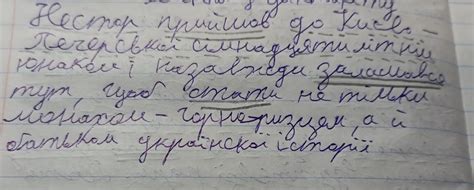 Нестор прийшов до Києво-
Печерської сімнадцятилітнім
юнаком і назавжди залишився
тут, щоб стати не тільки
монахом - чорноризцем, а й
батьком української історії